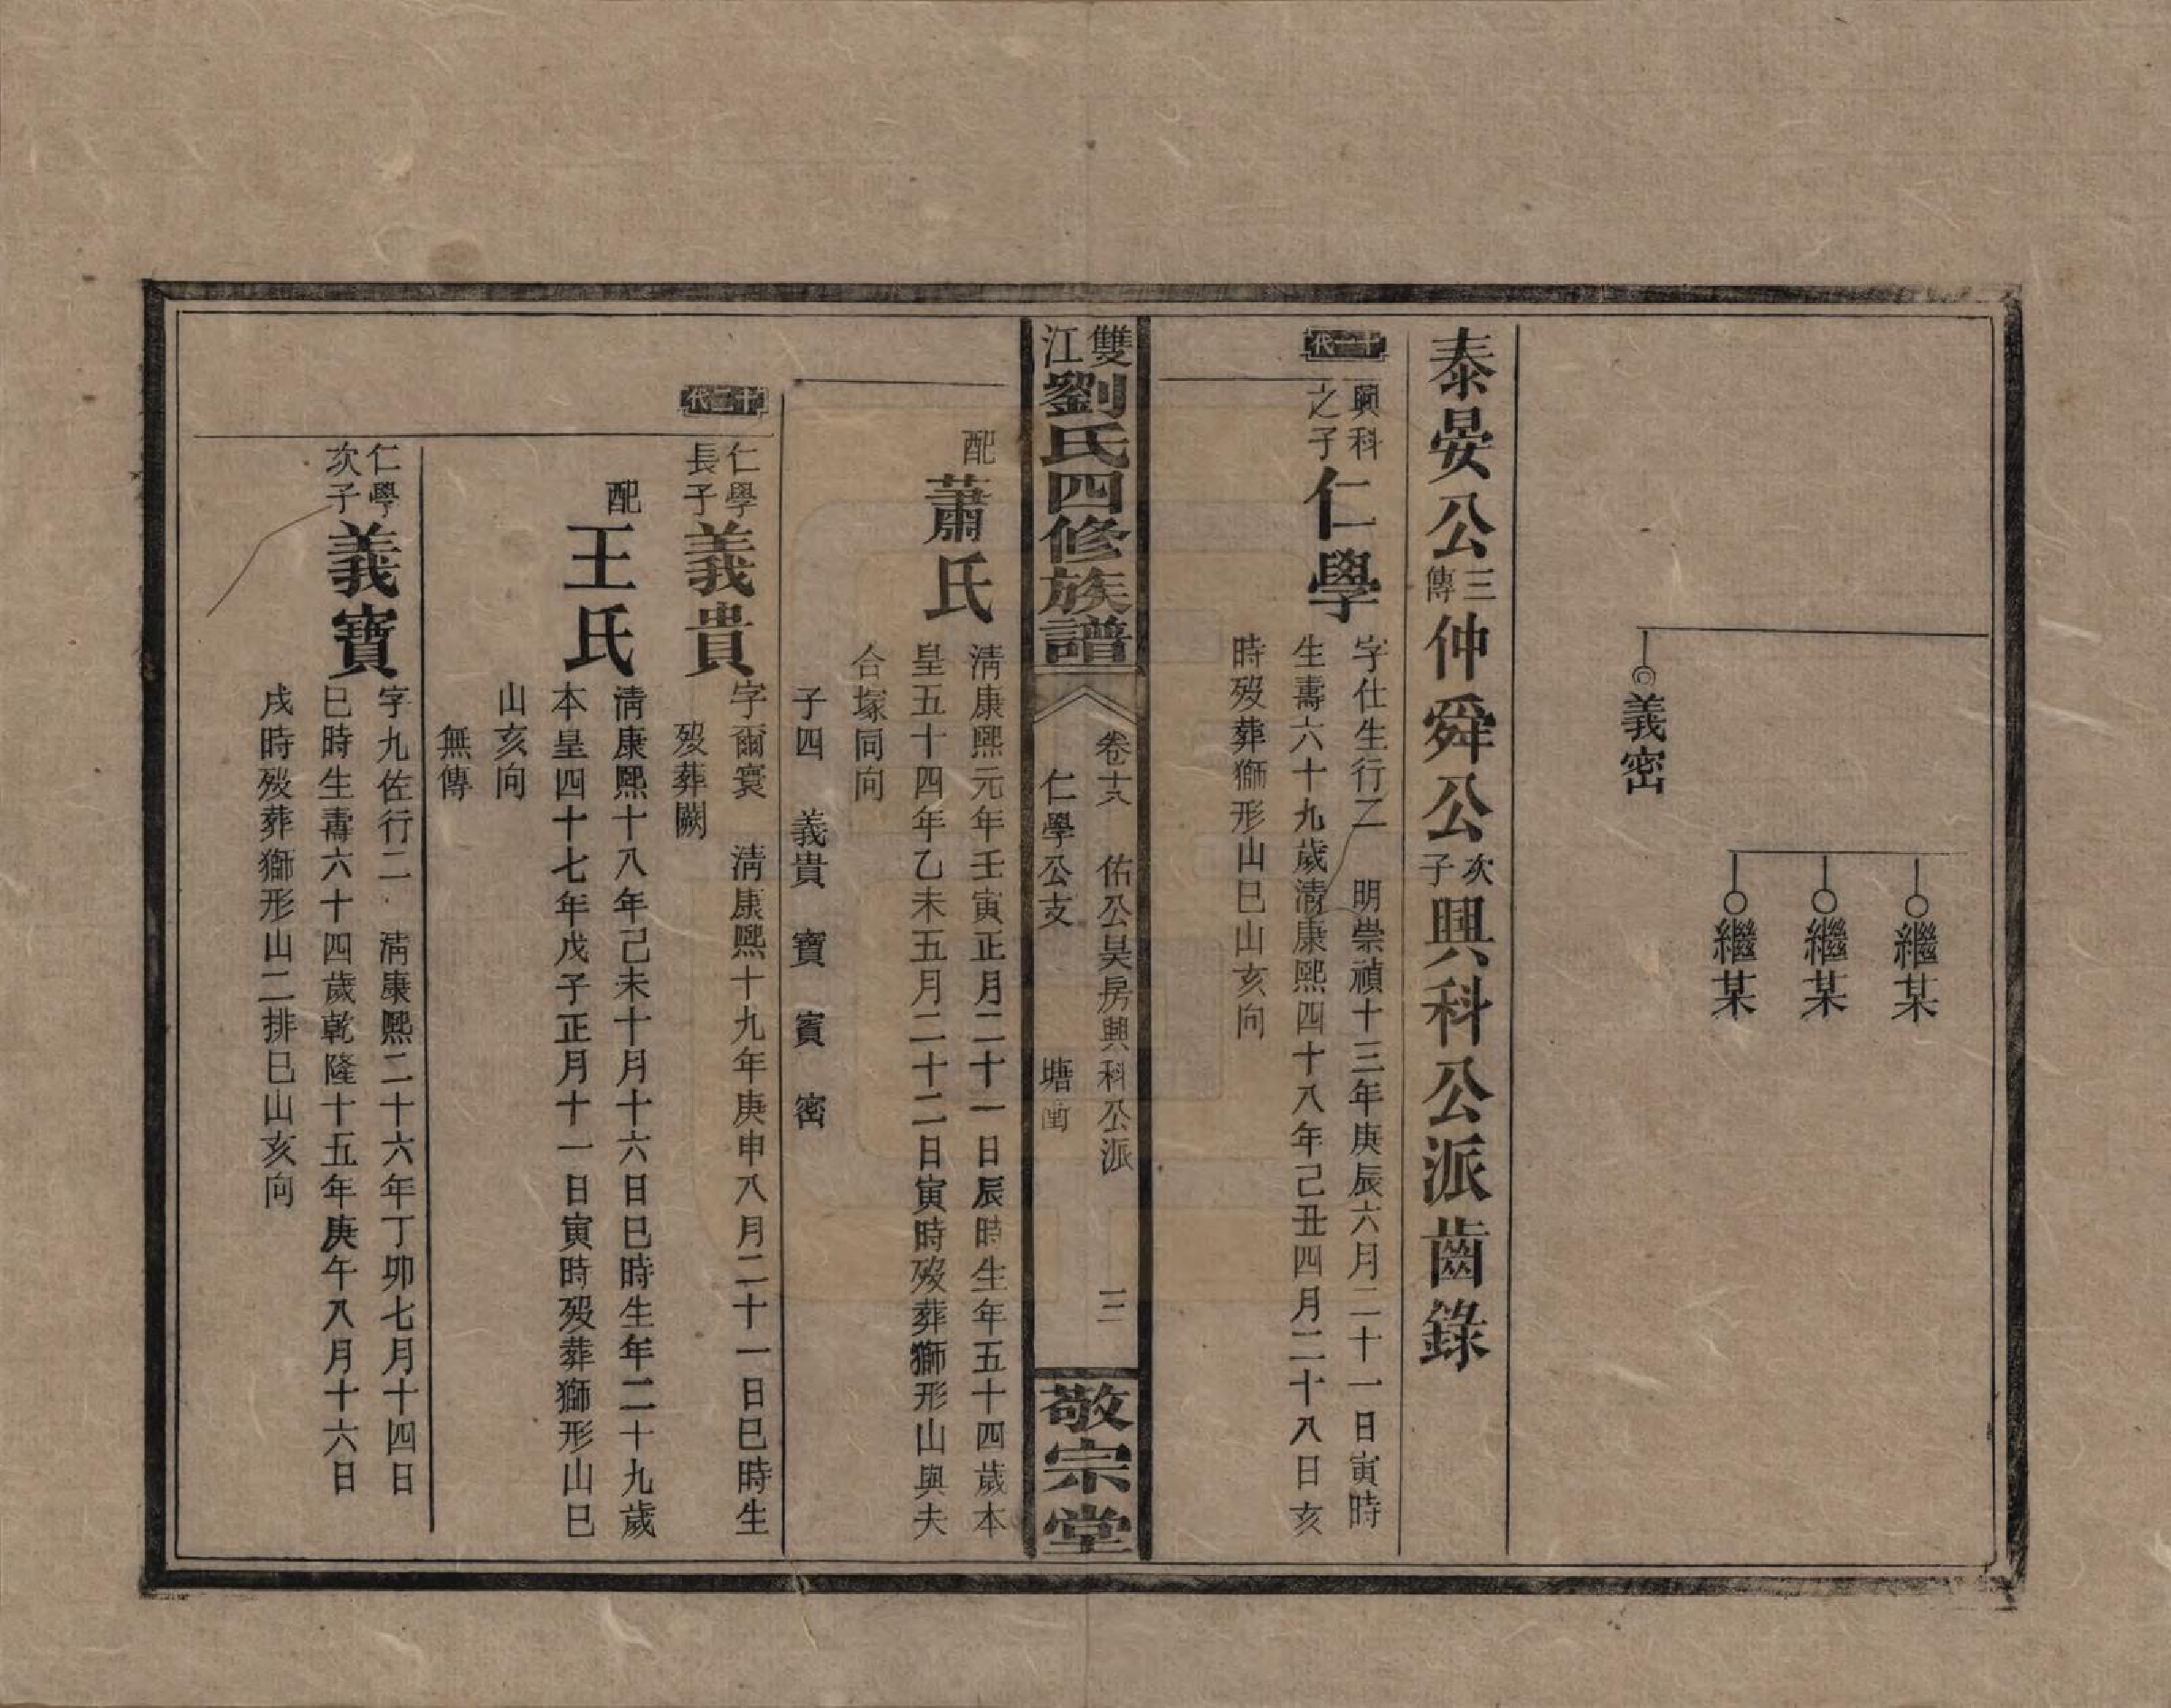 繼某
繼某
繼某
義密
泰晏公三傳仲舜公次子興科公派齒錄
十一代
興科之子
仁學
字仕生行乙　明崇禎十三年庚辰六月二十一日寅時
生壽六十九歲清康熙四十八年己丑四月二十八日亥
時歿葬獅形山巳山亥向
雙江劉氏四修族譜
卷十六　佑公昊房興科公派　三
仁學公支　塘
敬宗堂
配蕭氏
清康熙元年壬寅正月二十一日辰時生年五十四歲本
皇五十四年乙未五月二十二日寅時歿葬獅形山與夫
合塚同向
子四　義貴　寶　賓　密
十二代
仁學長子
義貴
字爾寰　清康熙十九年庚申八月二十一日巳時生
歿葬闕
配王氏
清康熙十八年己未十月十六日巳時生年二十九歲
本皇四十七年戊子正月十一日寅時歿葬獅形山巳
山亥向
無傳
仁學次子
義寶
字九佐行二　清康熙二十六年丁卯七月十四日
巳時生壽六十四歲乾隆十五年庚午八月十六日
戌時歿葬獅形山二排巳山亥向